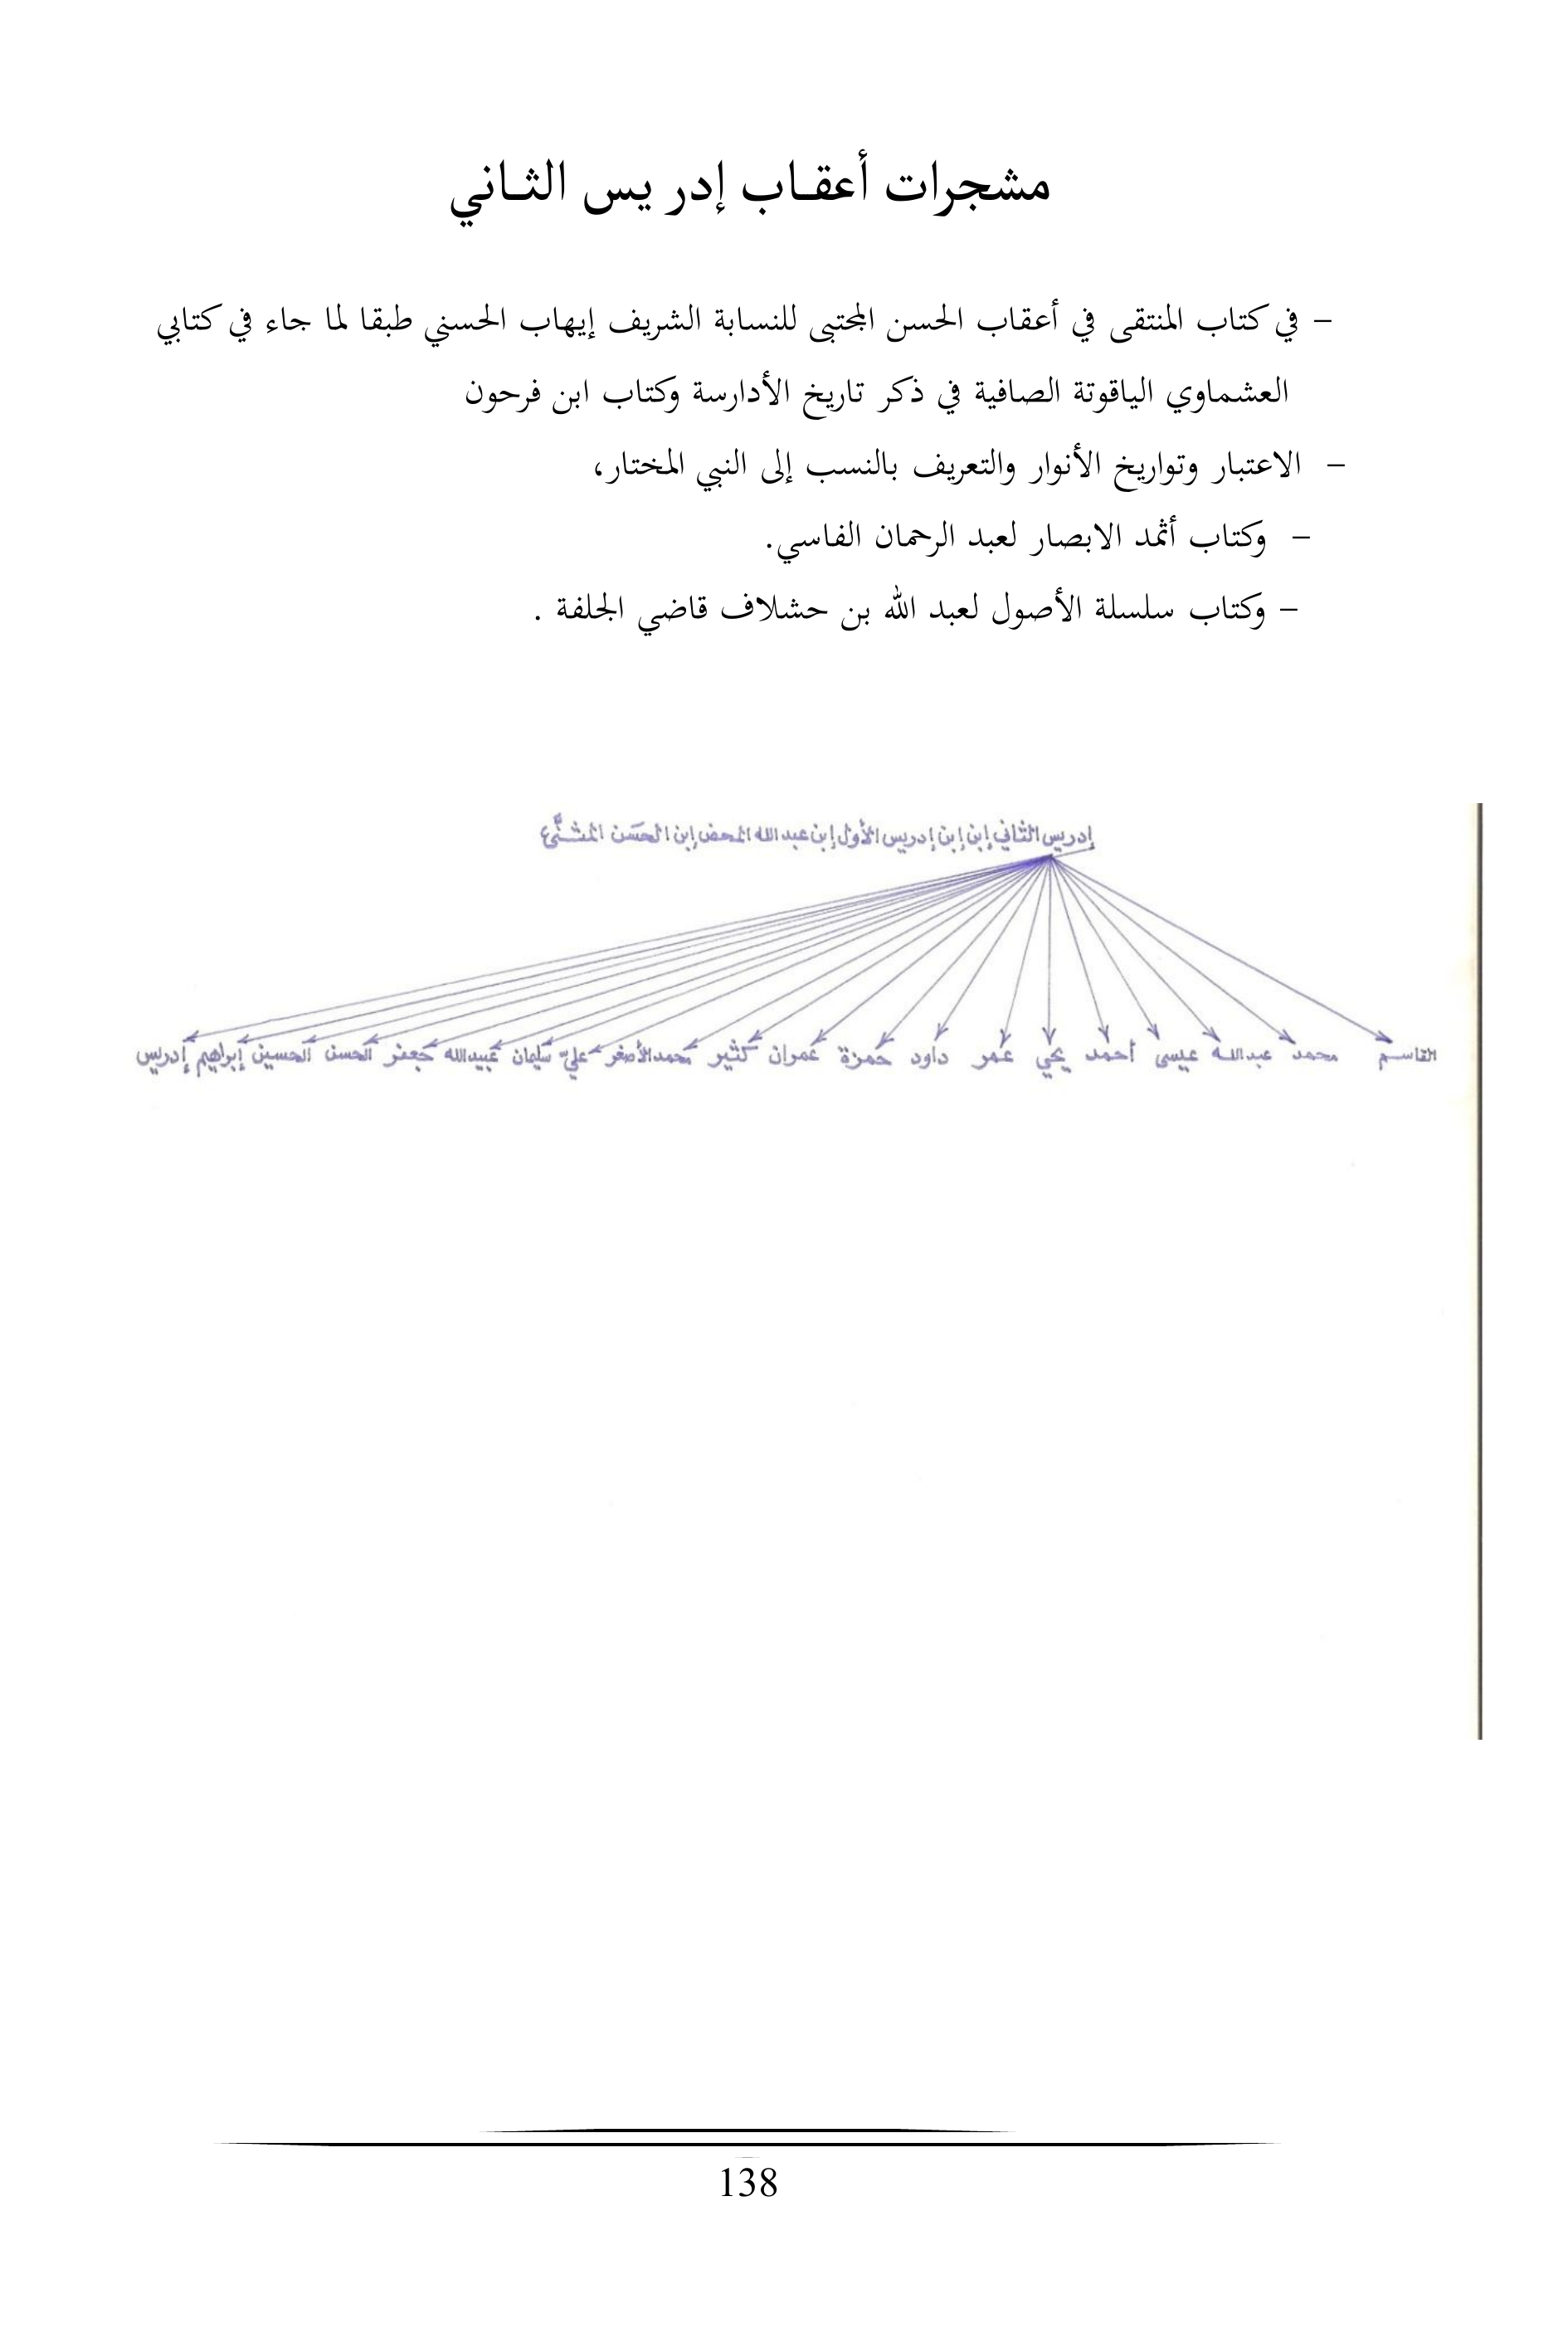 مشجرات أعقـاب إدر يس الثـاني
– في كتاب المنتقى في أعقاب الحسن المجتبى للنسابة الشريف إيهاب الحسني طبقا لما جاء في كتابي
العشماوي الياقوتة الصافية في ذكر تاريخ الأدارسة وكتاب ابن فرحون
– الاعتبار وتواريخ الأنوار والتعريف بالنسب إلى النبي المختار،
– وكتاب أثمد الابصار لعبد الرحمان الفاسي.
– وكتاب سلسلة الأصول لعبد الله بن حشلاف قاضي الجلفة .
إدريس الثاني إبن إبن إدريس الأول إبن عبد الله المحض إبن الحسن المثنَّى
القاسم محمد عبد الله عيسى أحمد يحي عمر داود حمزة عمران كثير محمد الأصغر عليّ سليمان عبيد الله جعفر الحسن الحسين إبراهيم إدريس
138